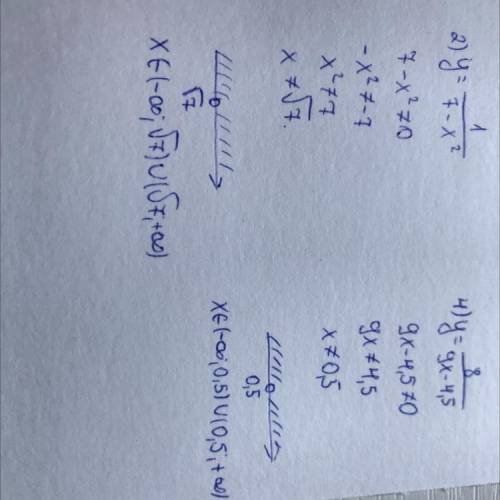 2) y = 1/(7 - x²)
7 - x² ≠ 0
-x² ≠ -7
x² ≠ 7
x ≠ √7.
√7
x ∈ (-∞; √7) ∪ (√7, +∞)
4) y = 8/(9x - 4,5)
9x - 4,5 ≠ 0
9x ≠ 4,5
x ≠ 0,5
0,5
x ∈ (-∞, 0,5) ∪ (0,5, +∞)